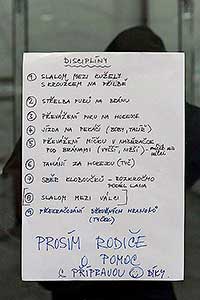 DISCIPLÍNY
① SLALOM MEZI KUŽELY
S KROUŽKEM NA PŘILBĚ
② STŘELBA PUKŮ NA BRÁNU
③ PŘEVÁŽENÍ PUKU NA HOKEJCE
④ JÍZDA NA PEKÁČI (BOBY, TALÍŘ)
⑤ PŘEVÁŽENÍ MÍČKU V NABĚRAČCE
POD BRÁNAMI (VYŠŠÍ, NIŽŠÍ)
⑥ TAHÁNÍ ZA HOKEJKU (TYČ)
⑦ SBĚR KLOBOUČKŮ - ROZKROČMO
PODÉL LANA
⑧ SLALOM MEZI VÁLCI
⑨ PŘEKRAČOVÁNÍ DŘEVĚNÝCH HRANOLŮ
(TYČEK)
PROSÍM RODIČE
O POMOC
S PŘÍPRAVOU ☺ DÍKY.